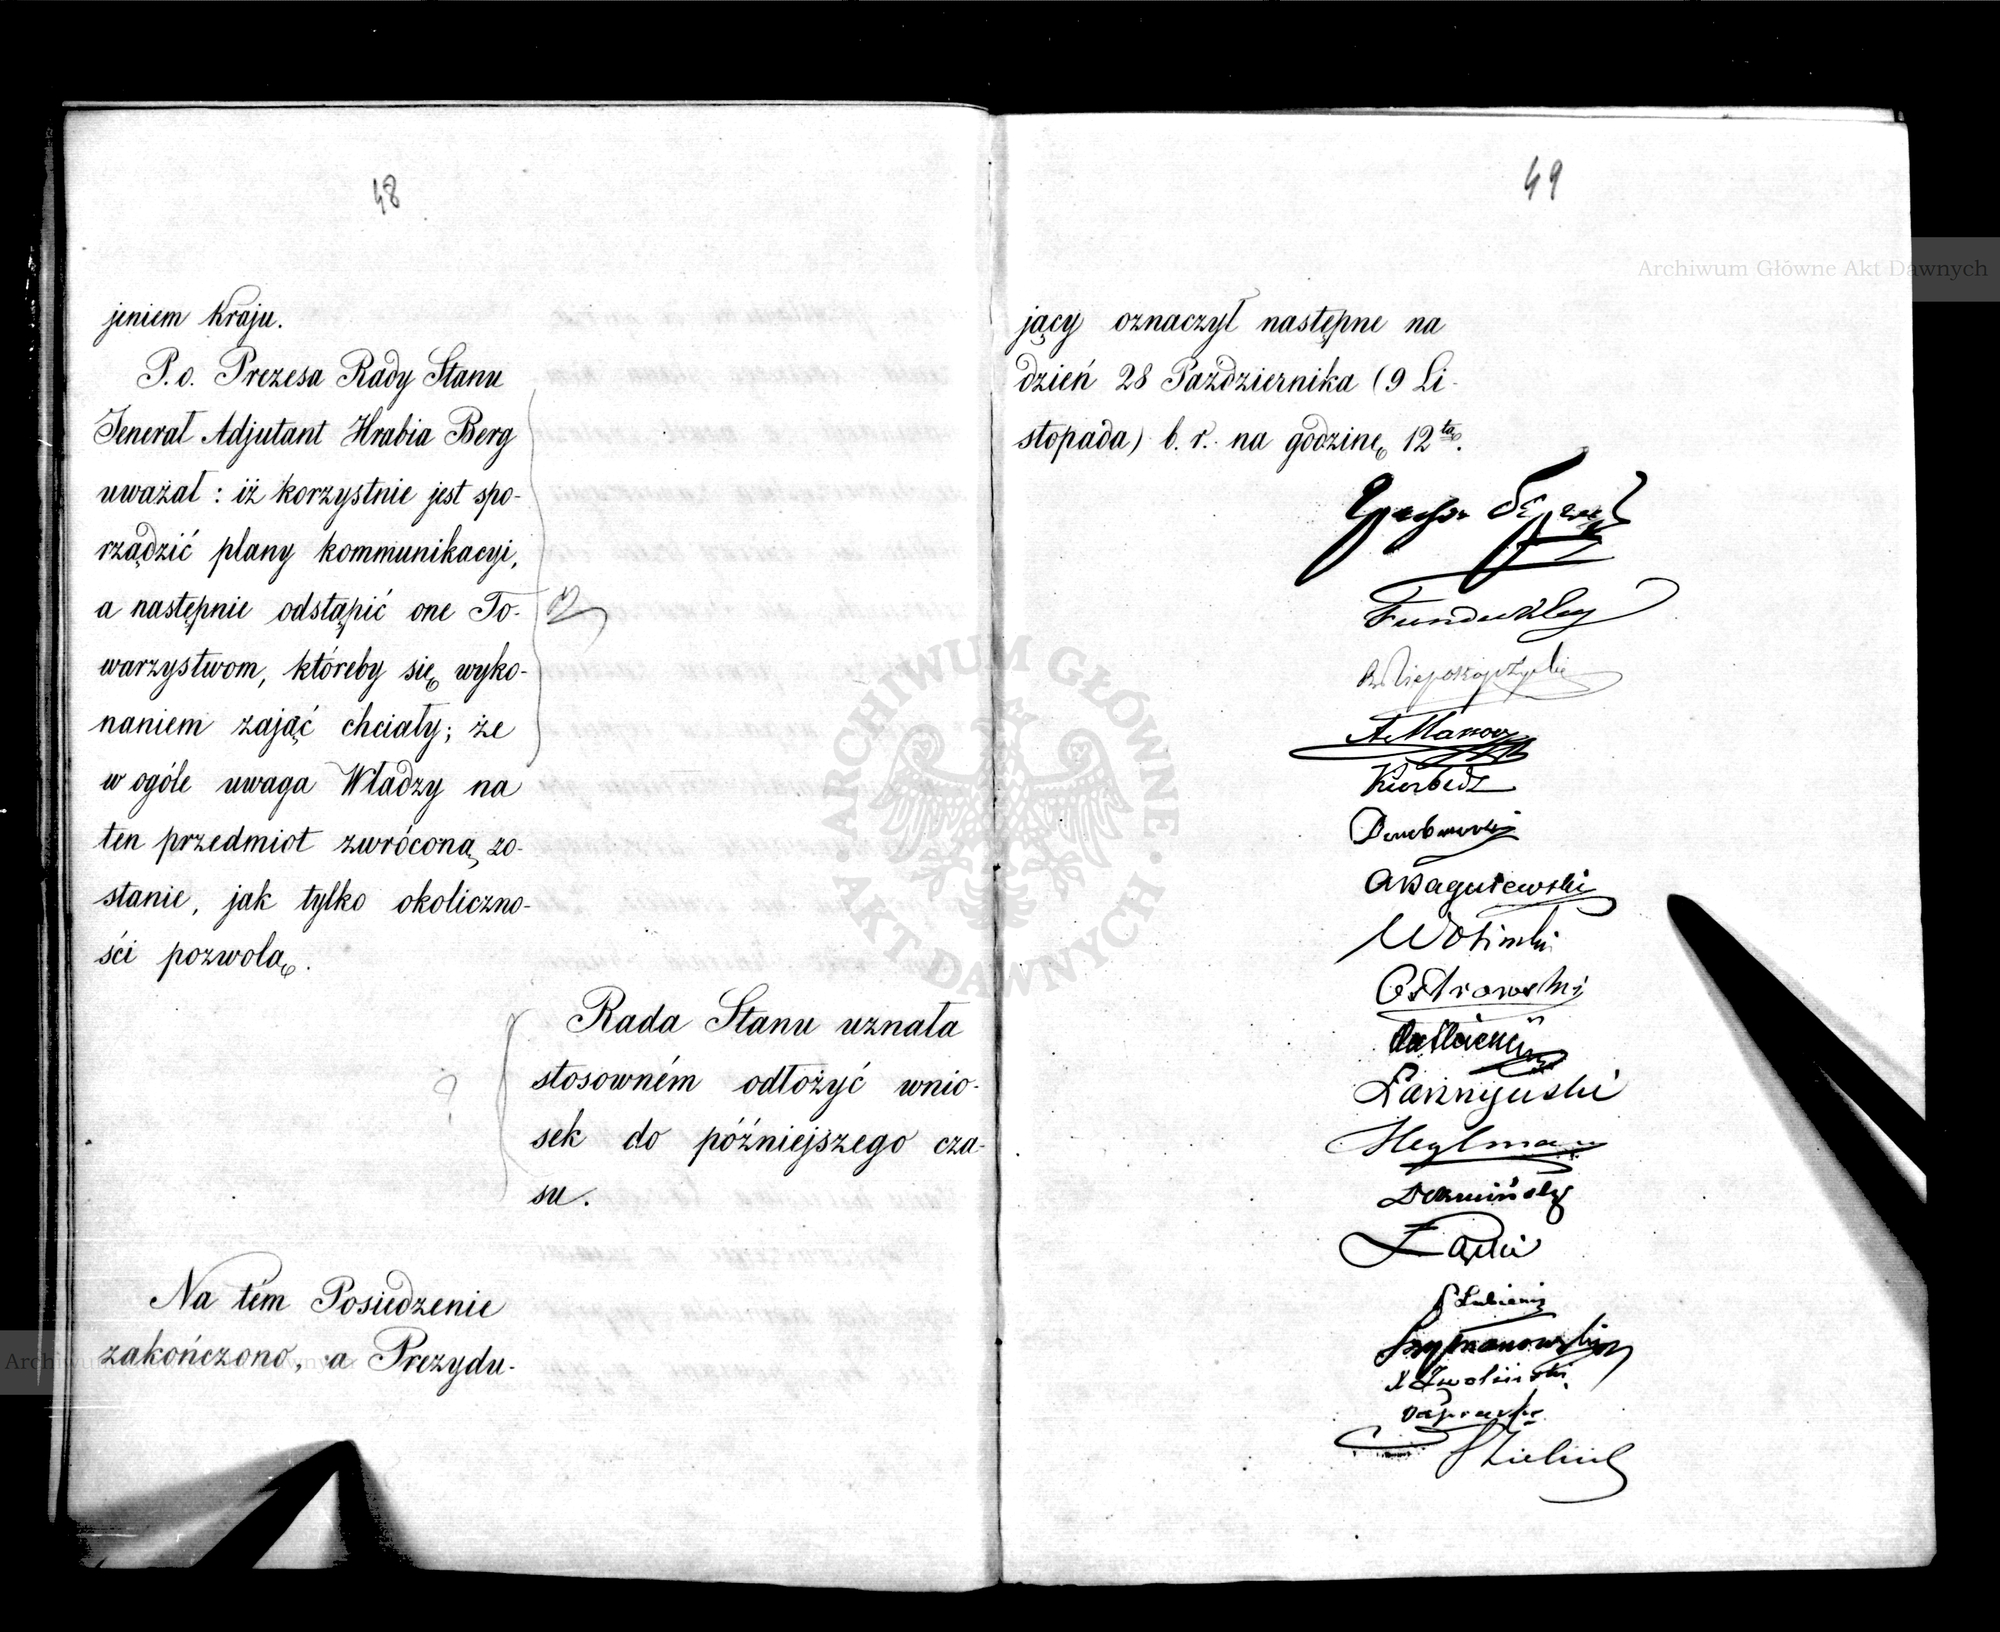 48
jeniem Kraju.
P. o. Prezesa Rady Stanu
Jenerał Adjutant Hrabia Berg
uważał: iż korzystnie jest spo-
rządzić plany kommunikacyi,
a następnie odstąpić one To-
warzystwom, któreby się wyko-
naniem zająć chciały; że
w ogóle uwaga Władzy na
ten przedmiot zwróconą zo-
stanie, jak tylko okoliczno-
ści pozwolą.
Rada Stanu uznała
stosowném odłożyć wnio-
sek do późniejszego cza-
su.
Na tém Posiedzenie
zakończono, a Prezydu-
49
jący oznaczył następne na
dzień 28 Października (9 Li-
stopada) b. r. na godzinę 12tą.
Fundukley
Kierbedź
Wołiński
Ostrowski
Łaszczyński
Heylman
Szymanowski
Zieliński
Archiwum Główne Akt Dawnych
ARCHIWUM GŁÓWNE AKT DAWNYCH